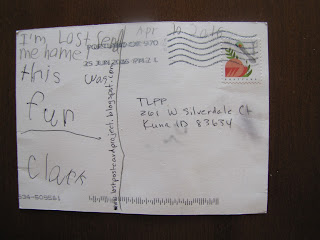 I'm Lost send
me home!
this
was
fun
Clark
Apr 10 2016
PORTLAND OR 970
25 JUN 2016 PM 2 L
www.lostpostcardproject.blogspot.com
TLPP
261 W Silverdale Ct
Kuna ID 83634